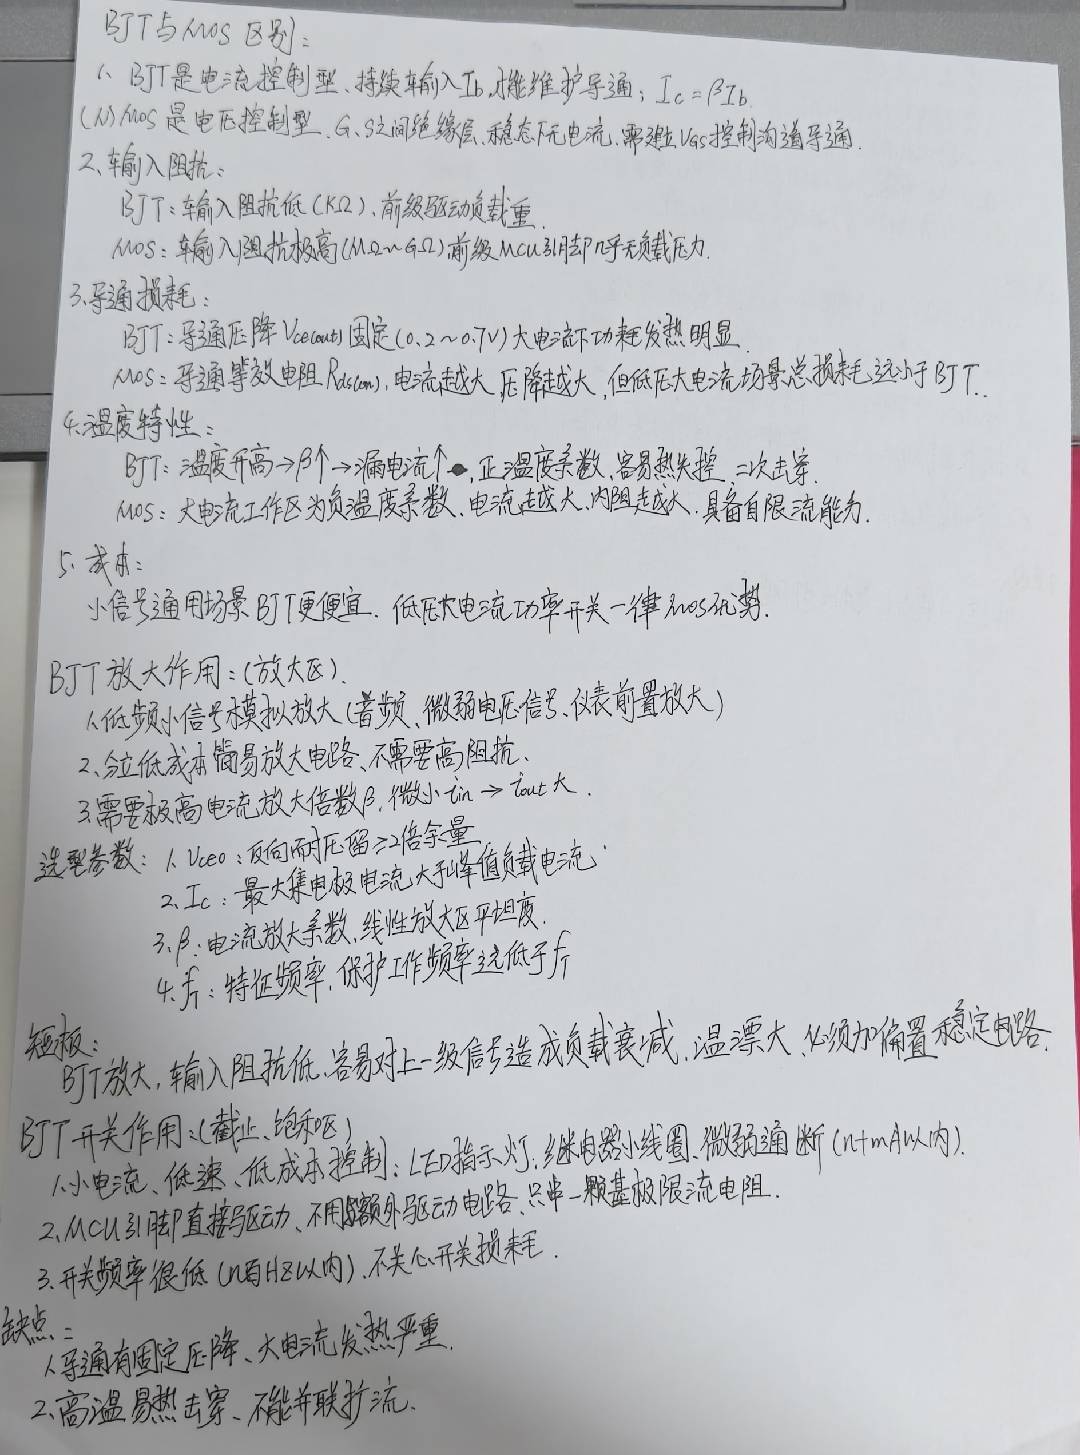 BJT与MOS区别:
1、BJT是电流控制型、持续输入Ib,才能维护导通; Ic=βIb.
(N)MOS是电压控制型、G、S之间绝缘层、稳态下无电流、需建立VGS控制沟道导通.
2、输入阻抗:
BJT:输入阻抗低(KΩ)、前级驱动负载重.
MOS:输入阻抗极高(MΩ~GΩ)前级MCU引脚几乎无负载压力.
3、导通损耗:
BJT:导通压降Vce(out)固定(0.2~0.7V)大电流下功耗发热明显.
MOS:导通等效电阻Rds(on),电流越大,压降越大,但低压大电流场景总损耗远小于BJT..
4、温度特性:
BJT:温度升高→β↑→漏电流↑,正温度系数、容易热失控、二次击穿.
MOS:大电流工作区为负温度系数、电流越大、内阻越大、具备自限流能力.
5、成本:
小信号通用场景BJT更便宜.低压大电流功率开关一律MOS优势.
BJT放大作用:(放大区).
1、低频小信号模拟放大(音频、微弱电压信号、仪表前置放大)
2、分立低成本简易放大电路、不需要高阻抗.
3、需要极高电流放大倍数β,微小iin→iout大.
选型参数:1、Vceo:反向耐压留≥2倍余量
2、Ic:最大集电极电流大于峰值负载电流.
3、β:电流放大系数,线性放大区平坦度.
4、fT:特征频率,保护工作频率远低于fT
短板:
BJT放大,输入阻抗低、容易对上一级信号造成负载衰减,温漂大、必须加偏置稳定电路.
BJT开关作用:(截止、饱和区)
1、小电流、低速、低成本控制:LED指示灯,继电器小线圈、微弱通断(n十mA以内).
2、MCU引脚直接驱动、不用额外驱动电路、只串一颗基极限流电阻.
3、开关频率很低(n百HZ以内)、不关心开关损耗.
缺点:
1、导通有固定压降、大电流发热严重.
2、高温易热击穿、不能并联扩流.